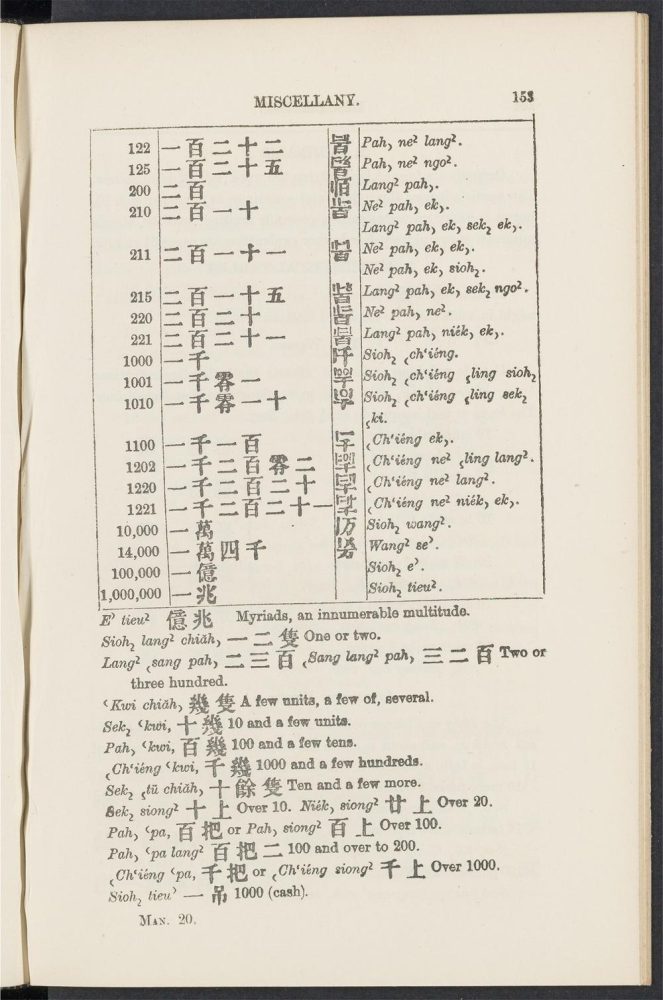 MISCELLANY. 153
122 一百二十二 Pah, ne² lang².
125 一百二十五 Pah, ne² ngo².
200 二百 Lang² pah,.
210 二百一十 Ne² pah, ek,.
Lang² pah, ek, sek₂ ek,.
211 二百一十一 Ne² pah, ek, ek,.
Ne² pah, ek, sioh₂.
215 二百一十五 Lang² pah, ek, sek₂ ngo².
220 二百二十 Ne² pah, ne².
221 二百二十一 Lang² pah, niék, ek,.
1000 一千 Sioh₂ ͺch‘iéng.
1001 一千零一 Sioh₂ ͺch‘iéng ͺling sioh₂
1010 一千零一十 Sioh₂ ͺch‘iéng ͺling sek₂
ͺki.
1100 一千一百 ͺCh‘iéng ek,.
1202 一千二百零二 ͺCh‘iéng ne² ͺling lang².
1220 一千二百二十 ͺCh‘iéng ne² lang².
1221 一千二百二十一 ͺCh‘iéng ne² niék, ek,.
10,000 一萬 Sioh₂ wang².
14,000 一萬四千 Wang² se’.
100,000 一億 Sioh₂ e’.
1,000,000 一兆 Sioh₂ tieu².
E’ tieu² 億兆 Myriads, an innumerable multitude.
Sioh₂ lang² chiăh, 一二隻 One or two.
Lang² ͺsang pah, 二三百 ͺSang lang² pah, 三二百 Two or
three hundred.
‘Kwi chiăh, 幾隻 A few units, a few of, several.
Sek₂ ‘kwi, 十幾 10 and a few units.
Pah, ‘kwi, 百幾 100 and a few tens.
ͺCh‘iéng ‘kwi, 千幾 1000 and a few hundreds.
Sek₂ ͺtü chiăh, 十餘隻 Ten and a few more.
Sek₂ siong² 十上 Over 10. Niék, siong² 廿上 Over 20.
Pah, ‘pa, 百把 or Pah, siong² 百上 Over 100.
Pah, ‘pa lang² 百把二 100 and over to 200.
ͺCh‘iéng ‘pa, 千把 or ͺCh‘iéng siong² 千上 Over 1000.
Sioh₂ tieu’ 一吊 1000 (cash).
MAN. 20.